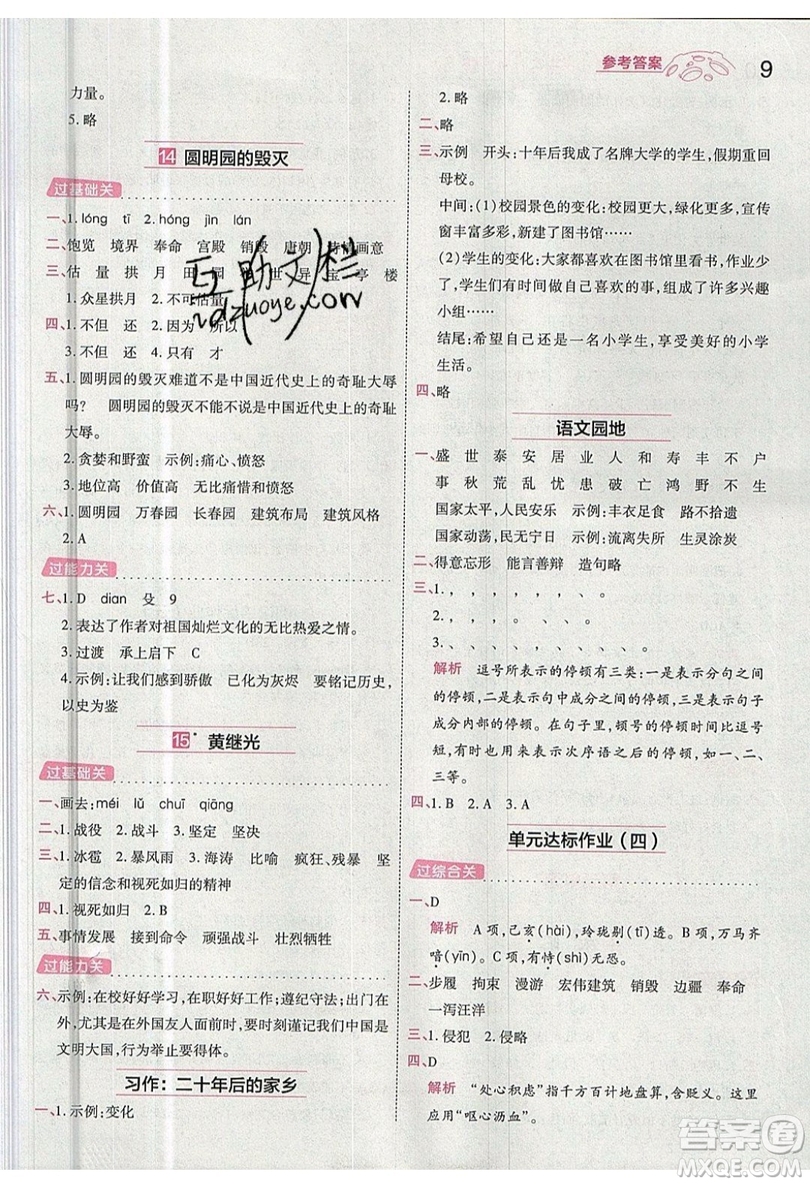 参考答案 9
力量。
5. 略
14 圆明园的毁灭
过基础关
一、1. lóng tī 2. hóng jìn lán
二、饱览 境界 奉命 宫殿 销毁 唐朝 画意
三、估 量 拱 月 亭 楼
1. 众星拱月 2. 不可估量
四、1. 不但 还 2. 因为 所以
3. 不但 还 4. 只有 才
五、1. 圆明园的毁灭难道不是中国近代史上的奇耻大辱
吗? 圆明园的毁灭不能不说是中国近代史上的奇耻
大辱。
2. 贪婪和野蛮 示例:痛心、愤怒
3. 地位高 价值高 无比愤怒
六、1. 圆明园 万春园 长春园 建筑布局 建筑风格
2. A
过能力关
七、1. D dian 殳 9
2. 表达了作者对祖国灿烂文化的无比热爱之情。
3. 过渡 承上启下 C
4. 示例:让我们感到骄傲 已化为灰烬 要铭记历史,
以史为鉴
15* 黄继光
过基础关
一、画去:méi lǔ chuī qiāng
二、1. 战役 2. 战斗 3. 坚定 坚决
三、1. 冰雹 2. 暴风雨 3. 海涛 比喻 疯狂、残暴 坚
定的信念和视死如归的精神
四、1. 视死如归 2. B
五、事情发展 接到命令 顽强战斗 壮烈牺牲
过能力关
六、示例:在校好好学习,在职好好工作;遵纪守法;出门在
外,尤其是在外国友人面前时,要时刻谨记我们中国是
文明大国,行为举止要得体。
习作:二十年后的家乡
一、1. 示例:变化
2. 略
二、略
三、示例 开头:十年后我成了名牌大学的学生,假期重回
母校。
中间:(1)校园景色的变化:校园更大,绿化更多,宣传
窗丰富多彩,新建了图书馆……
(2)学生的变化:大家都喜欢在图书馆看书,作业少
了,同学们都在做自己喜欢的事,成立了许多兴趣
小组……
结尾:希望自己还是一名小学生,享受美好的小学
生活。
四、略
语文园地
一、盛 世 泰 安 居 业 人 和 寿 丰 不 户
事 秋 荒 乱 忧 患 破 亡 鸿 野 不 生
国家太平,人民安乐 示例:丰衣足食 路不拾遗
国家动荡,民不安宁 示例:流离失所 生灵涂炭
二、得意忘形 能言善辩 造句略
三、1. , , , , , 、 。
2. 、 , , 。
3. 、 、 、 。
解析 逗号所表示的停顿有三类:一是表示分句之间
的停顿,二是表示句中成分之间的停顿,三是表示句子
成分内部的停顿。在句子里面,顿号的停顿比逗号短,
一般用来隔开并列的词或者并列的较短的短语。在并
列词语之间,表示次序语之后的停顿,如一、二、
三等。
四、1. B 2. A 3. A
单元达标作业(四)
过综合关
一、D
解析 A项,己亥(hài),玲珑剔(tī)透。B项,万马齐
喑(yīn)。C项,有恃(shì)无恐。
二、步履 拘束 漫游 宏伟建筑 销毁 边疆 奉命
一泻汪洋
三、1. 侵犯 2. 侵略
四、D
解析 “处心积虑”指千方百计地盘算,含贬义。这里
应用“呕心沥血”。
互助文栏
hdzuoye.com
答案圈
MXQE.COM